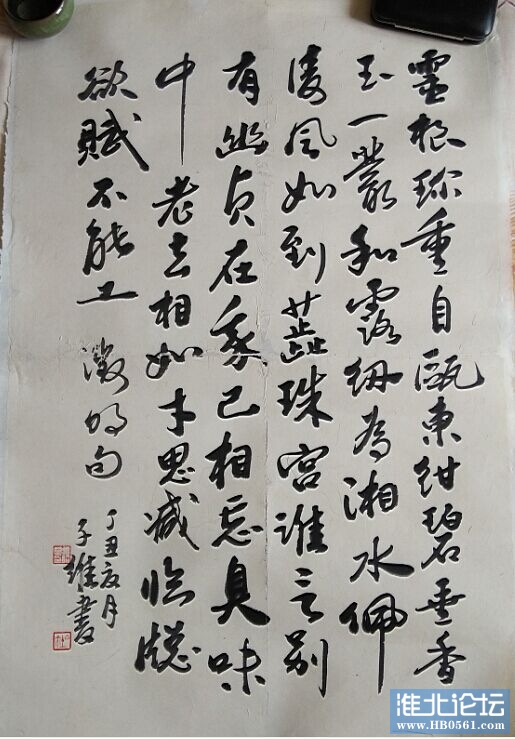 靈根珍重自甌東紺碧垂香
玉一叢和露紉為湘水佩
凌風如到蕋珠宮誰言別
有幽貞在我已相忘臭味
中老去相如才思減臨牕
欲賦不能工 徵明句
丁丑夏月
子維書
淮北论坛
www.HB0561.com